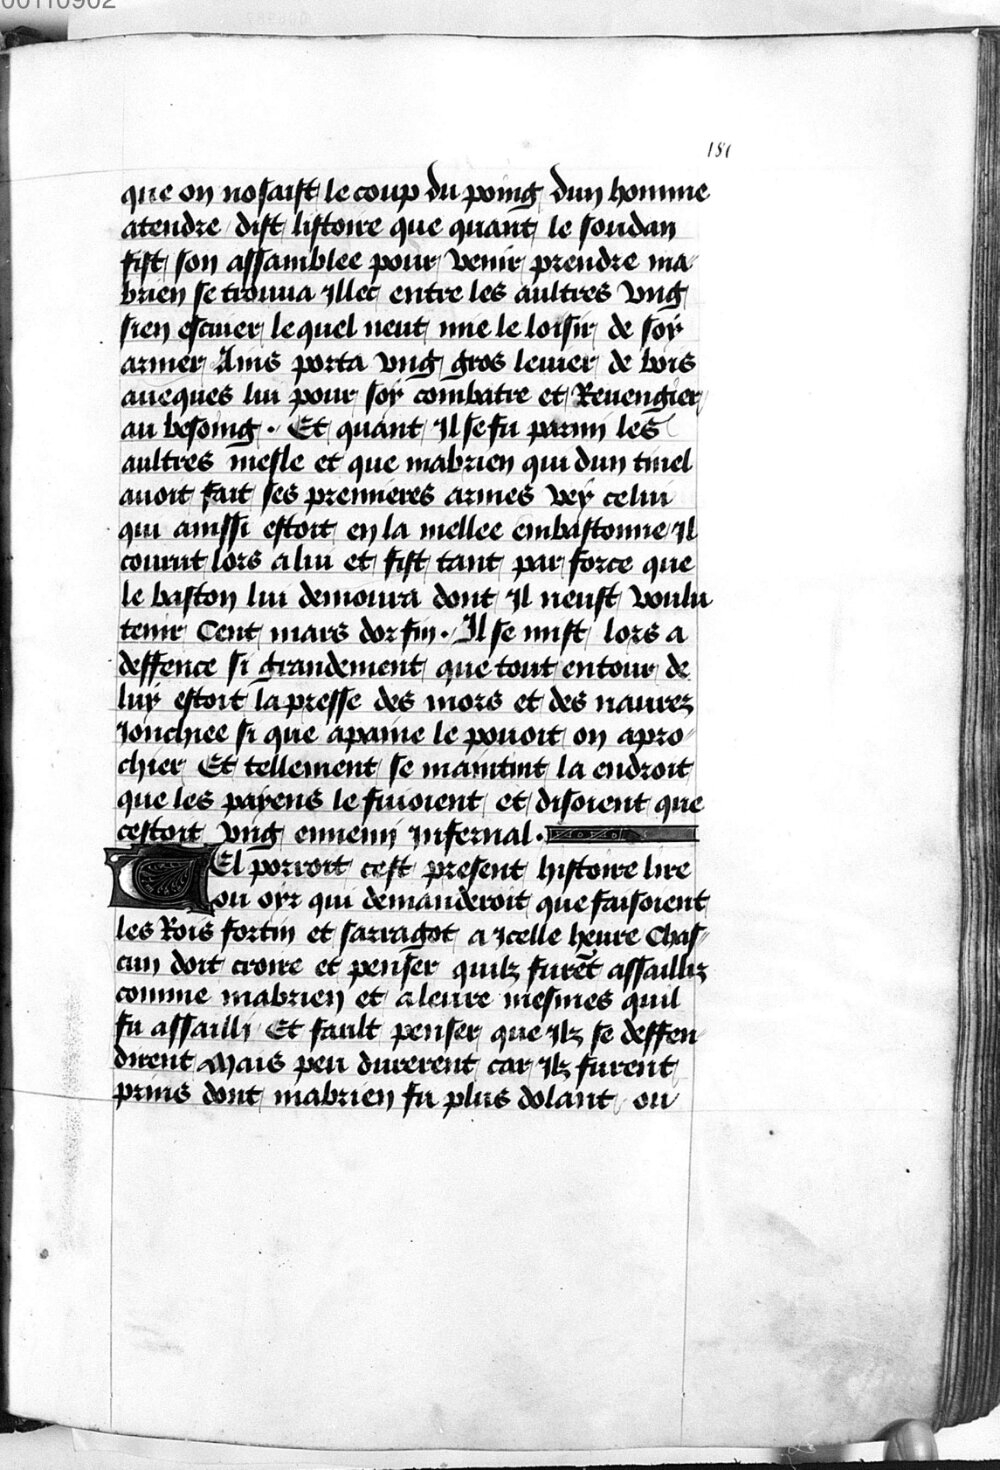 00110902
181
que on nosaist le coup du poing dun homme
atendre / dist listoire que quant le soudan
fist son assamblee pour venir prendre ma-
brien se trouua Illec entre les aultres vng
sien escuier lequel neut mie le loisir de soy
armer Ains porta vng gros leuier de bois
auecques lui pour soy combatre et Reuengier
au besoing . Et quant Il se fu parmi les
aultres mesle et que mabrien qui dun tinel
auoit fait ses premieres armes vey celui
qui ainssi estoit en la mellee embastonne / Il
courut lors a lui et fist tant par force que
le baston lui demoura dont Il neust voulu
tenir Cent mars dor fin . Il se mist lors a
deffence si grandement que tout entour de
luy estoit la presse des mors et des naurez
Jonchiee si que apaine le pouoit on apro-
chier Et tellement se maintint la endroit
que les payens le fuioient et disoient que
cestoit vng ennemi Infernal .
Tel porroit cest present histoire lire
ou oyr qui demanderoit que faisoient
les Rois fortin et sarragot a Icelle heure Chas-
cun doit croire et penser quilz furẽt assailliz
comme mabrien et a leure mesmes quil
fu assailli Et fault penser que Ilz se deffen-
dirent Mais peu durerent car Ilz furent
prins dont mabrien fu plus dolant ou